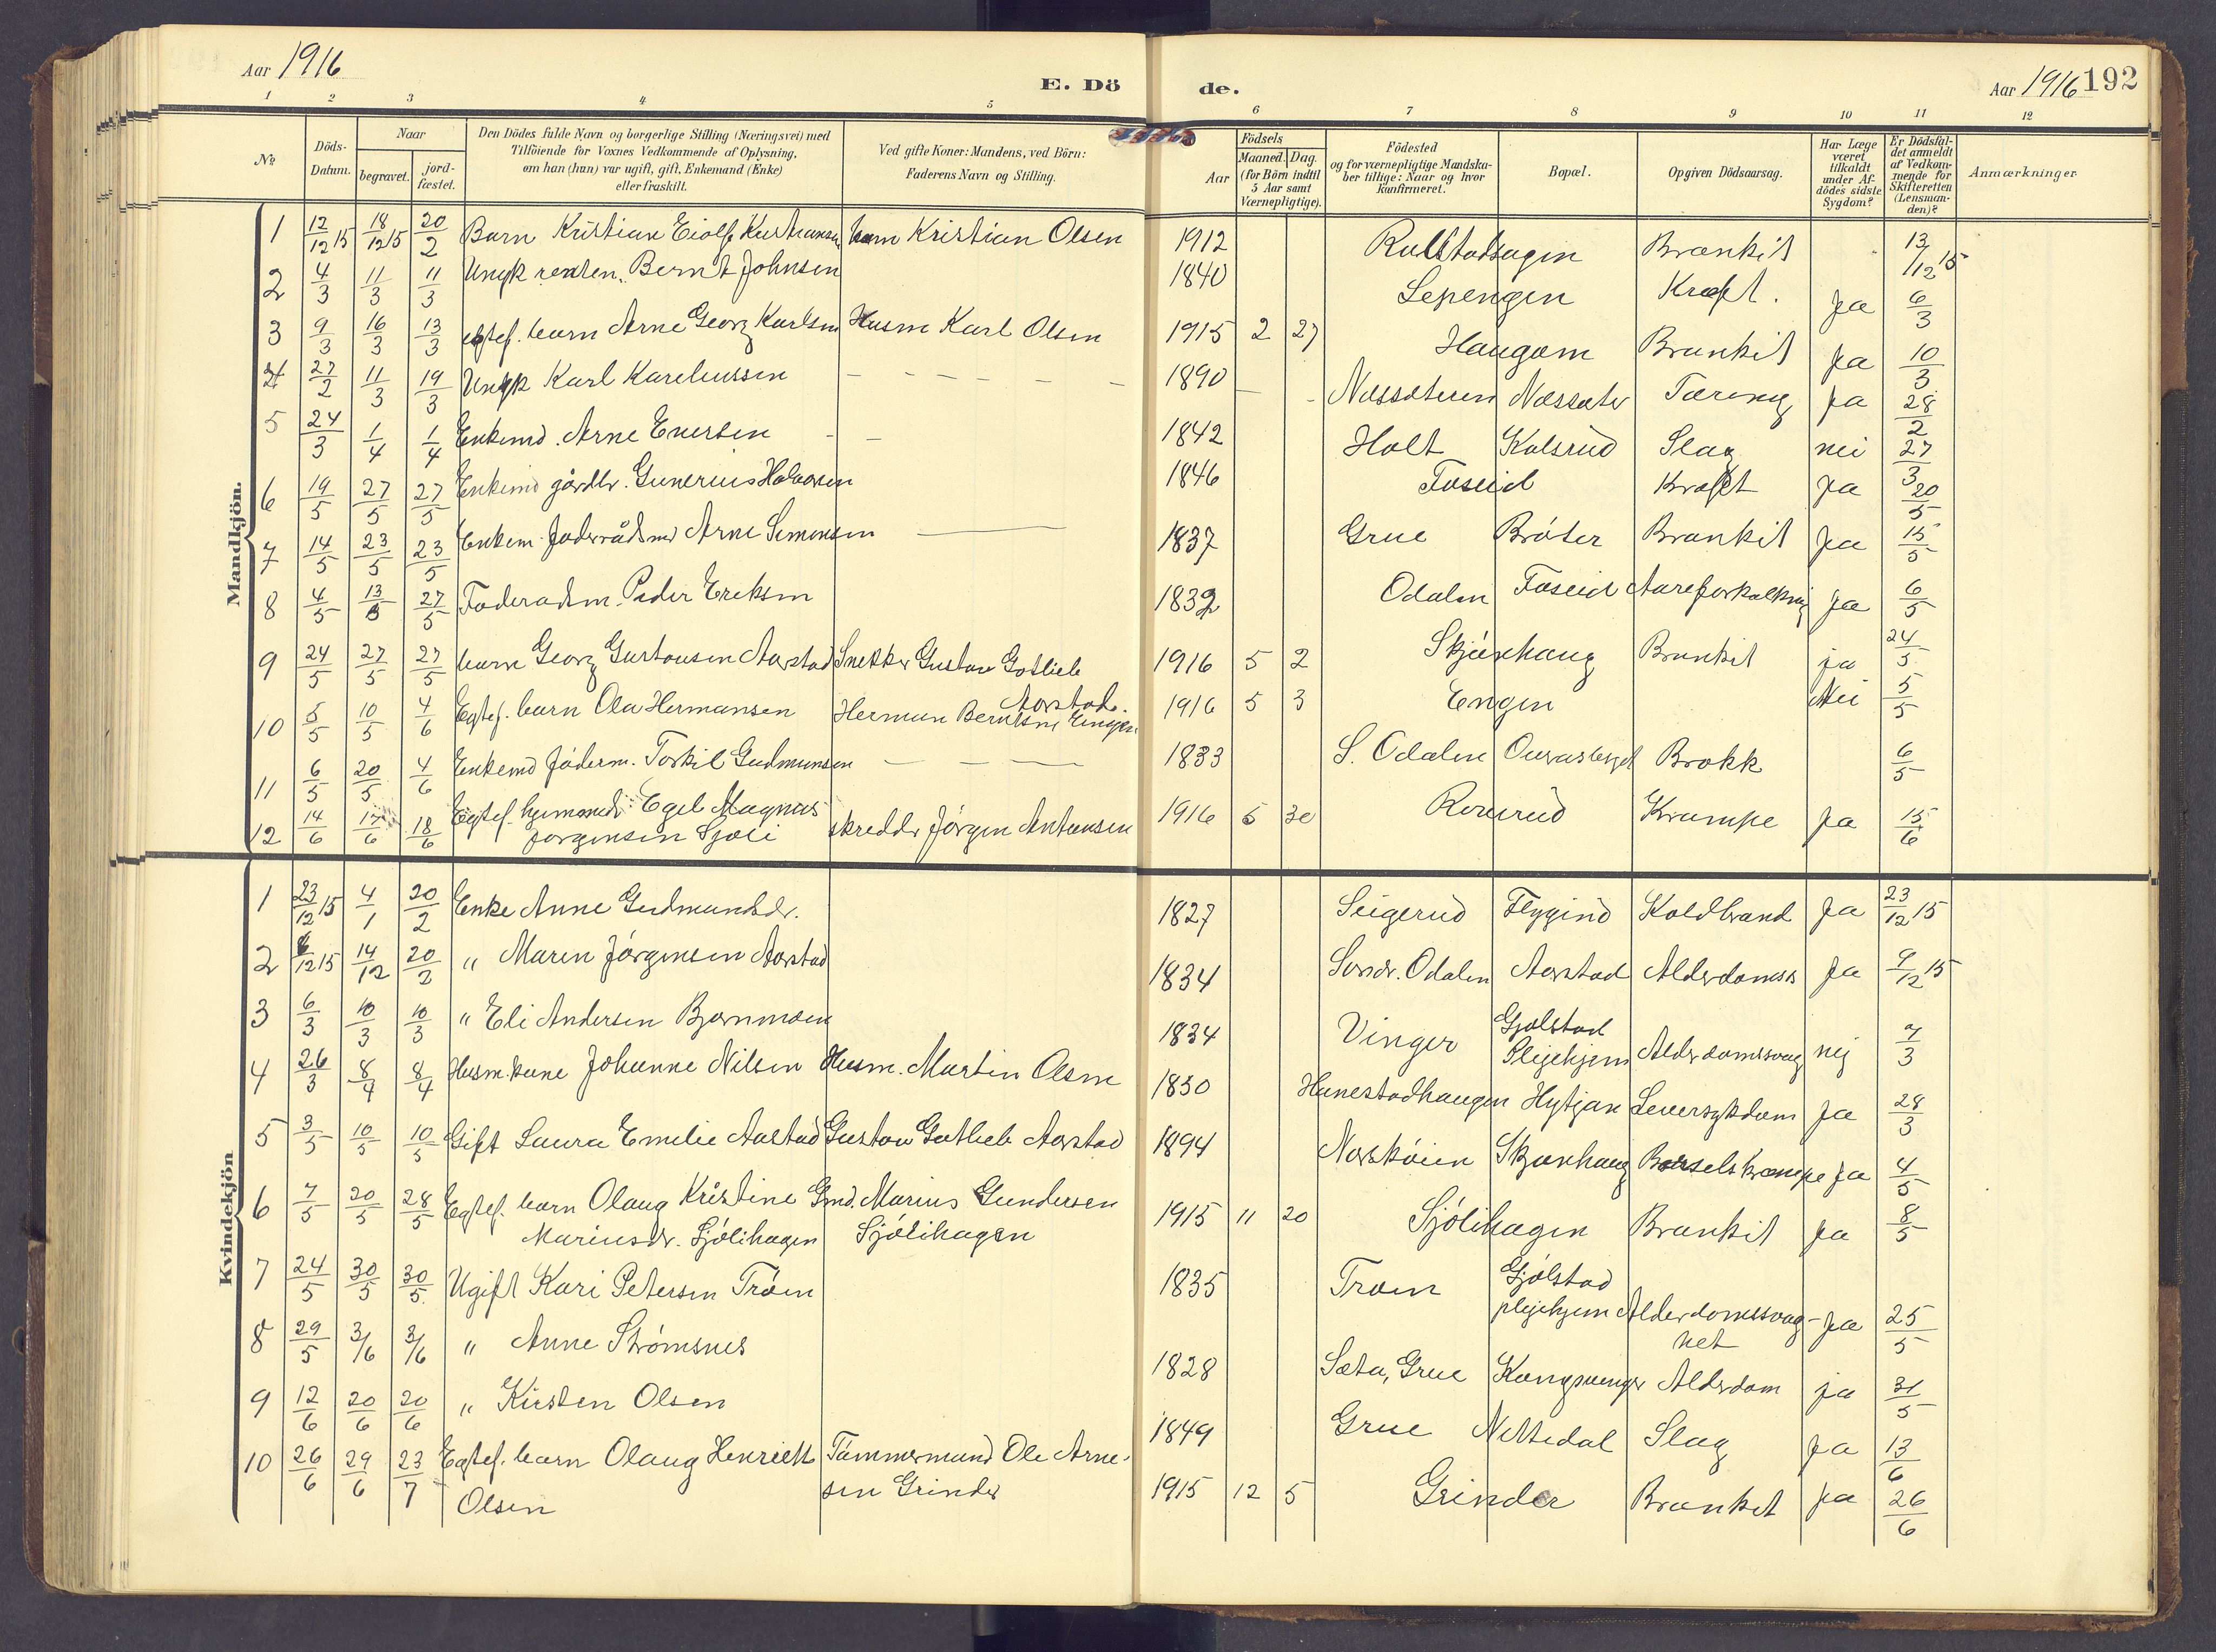 Aar 1916
E. Dö de.
Aar 1916 192
1 2 3 4 5 6 7 8 9 10 11 12
№
Döds-Datum.
Naar
begravet.
jord-fæstet.
Den Dödes fulde Navn og borgerlige Stilling (Næringsvei) med
Tilföiende for Voxnes Vedkommende af Oplysning,
om han (hun) var ugift, gift, Enkemand (Enke)
eller fraskilt.
Ved gifte Koner: Mandens, ved Börn:
Faderens Navn og Stilling.
Födsels
Aar
Maaned. Dag.
(for Börn indtil
5 Aar samt
Værnepligtige).
Födested
og for værnepligtige Mandska-
ber tillige: Naar og hvor
konfirmeret.
Bopæl.
Opgiven Dödsaarsag.
Har Læge
været
tilkaldt
under Af-
dödes sidste
Sygdom?
Er Dödsfal-
det anmeldt
af Vedkom-
mende for
Skifteretten
(Lensman-
den)?
Anmærkninger
Mandkjön.
1 12/12 15 18/12 15 20/2 Barn Kristian Eiolf Kristiansen Kristian Olsen 1912 Brankit 13/12 15
2 4/3 11/3 11/3 Ungk Bernt Johnsen 1840 Sepengen Kræft. Ja 6/3
3 9/3 16/3 13/3 egtef. barn Arne Georg Karlsen Husm Karl Olsen 1915 2 27 Haugom Brankit Ja 10/3
4 27/2 11/3 19/3 Ungk Karl Kareliussen 1890 Næssæteren Næssæter Tæring Ja 28/2
5 24/3 1/4 1/4 Enkemd. Arne Enersen 1842 Holt Kolsrud Slag nei 27/3
6 19/5 27/5 27/5 Enkemd gårdbr. Gunerius Halvorsen 1846 Føseid Kræft Ja 20/5
7 14/5 23/5 23/5 Enkem. Føderådsmd Arne Simensen 1837 Grue Bråter Brankit Ja 15/5
8 4/5 13/5 27/5 Føderadsm. Peder Ereksen 1832 Odalen Føseid Aareforkalkning Ja 6/5
9 24/5 27/5 27/5 barn Georg Gustavsen Aarstad Snekker Gustav Gotlieb Aarstad. 1916 5 2 Skjærhaug Brankit ja 24/5
10 5/5 10/5 4/6 Egtef. barn Ola Hermansen Herman Berntsen Engen 1916 5 3 Engen Nei 5/5
11 6/5 20/5 4/6 Enkemd føderm. Torkil Gudmunsen 1833 S. Odalen Brokk 6/5
12 14/6 17/6 18/6 Egtef. hjemmed. Egil Magnus
Jørgensen Sjøli skredder Jørgen Antonsen 1916 5 30 Romrud Krampe Ja 15/6
Kvindekjön
1 23/12 15 4/1 20/2 Enke Anne Gudmundsdr. 1827 Seigerud Flygind Koldbrand Ja 23/12 15
2 8/12 15 14/12 20/2 " Maren Jørgensen Aarstad 1834 Sondr. Odalen Aarstad Alderdomss Ja 9/12 15
3 6/3 10/3 10/3 " Eli Andersen Bjørnmoen 1834 Vinger Gjølstad
Pleiehjem Alderdomssvag nej 7/3
4 26/3 8/4 8/4 Husm. kone Johanne Nilsen Husm. Martin Olsen 1830 Hunestadhaugen Hytjan Leversykdom Ja 28/3
5 3/5 10/5 10/5 Gift Laura Emilie Aastad Gustav Gotlieb Aarstad 1894 Norskøien Skjærhaug Barselskrampe Ja 4/5
6 7/5 20/5 28/5 Egtef. barn Olaug Kristine Gmd. Marius Gundersen 1915 11 20 Sjølihagen Brankit Ja 8/5
Mariusdr. Sjølihagen Sjølihagen
7 24/5 30/5 30/5 Ugift Kari Petersen Trøen 1835 Trøen Gjølstad
pleiehjem Alderdomssvag-
het Ja 25/5
8 29/5 3/6 3/6 " Anne Strømsnes 1828 Sæta, Grue Kongsvinger Alderdom ja 31/5
9 12/6 20/6 20/6 " Kirsten Olsen 1849 Grue Nettedal Slag Ja 13/6
10 26/6 29/6 23/7 Egtef. barn Olaug Henriette Tømmermand Ole Arne- 1915 12 5 Grinder Brankit Ja 26/6
Olsen sen Grinder